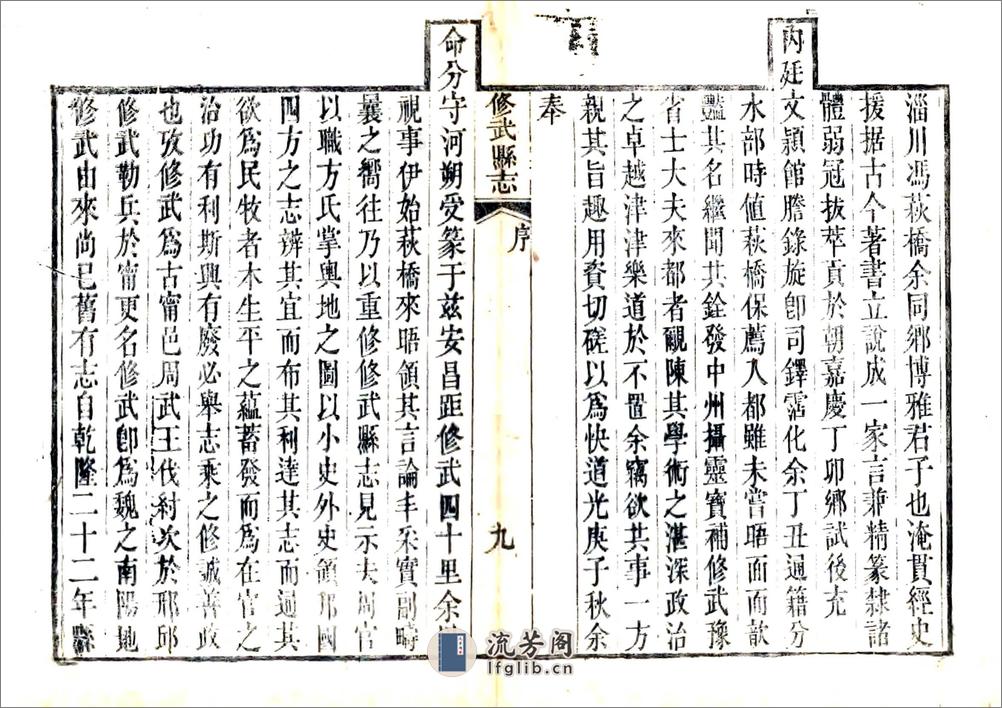 淄川馮萩橋余同鄉博雅君子也淹貫經史
援据古今著書立說成一家言兼精篆隸諸
體弱冠拔萃貢於朝嘉慶丁卯鄉試後充
內廷文穎館謄錄旋卽司鐸霑化余丁丑通籍分
水部時値萩橋保薦入都雖未嘗晤面而歆
豔其名繼聞其銓發中州攝靈寶補修武豫
省士大夫來都者覼陳其學術之湛深政治
之卓越津津樂道於不置余竊欲共事一方
親其旨趣用資切磋以爲快道光庚子秋余
奉
修武縣志
序
九
命分守河朔受篆于茲安昌距修武四十里余
視事伊始萩橋來晤領其言論丰采實副疇
曩之嚮往乃以重修修武縣志見示夫周官
以職方氏掌輿地之圖以小史外史領邦國
四方之志辨其宜而布其利達其志而通其
欲爲民牧者本生平之蘊蓄發而爲在官之
治功有利斯興有廢必舉志乘之修誠善政
也攷修武爲古甯邑周武王伐紂次於邢邱
修武勒兵於甯更名修武卽爲魏之南陽地
修武由來尚已舊有志自乾隆二十二年縣
流芳阁
lfglib.cn